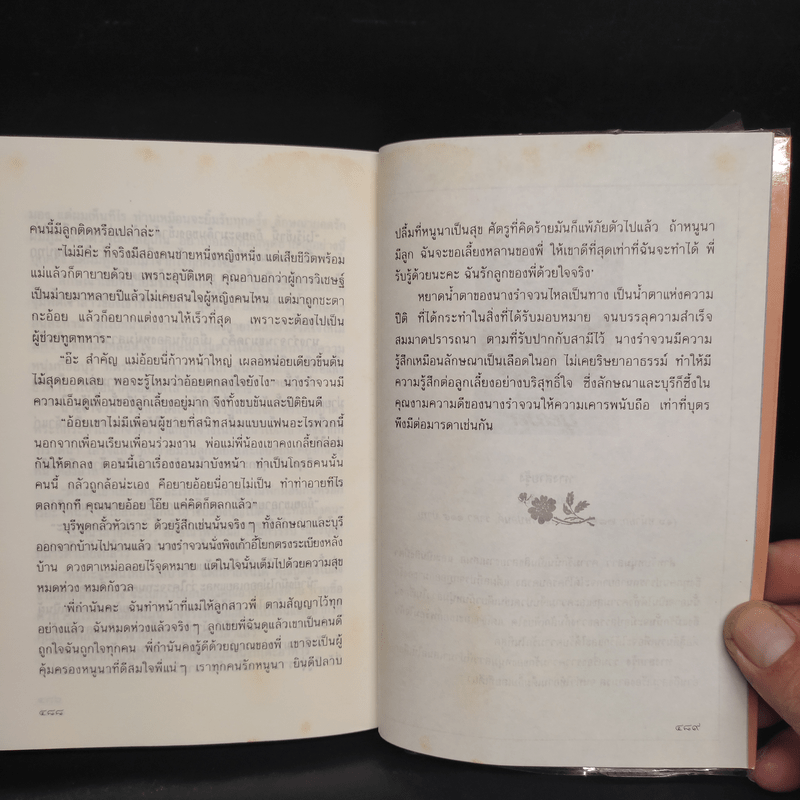 คนนี้มีลูกติดหรือเปล่าล่ะ"
"ไม่มีค่ะ ที่จริงมีสองคนชายหนึ่งหญิงหนึ่ง แต่เสียชีวิตพร้อม
แม่แล้วก็ตายายด้วย เพราะอุบัติเหตุ คุณอาบอกว่าผู้การวิเชษฐ์
เป็นม่ายมาหลายปีแล้วไม่เคยสนใจผู้หญิงคนไหน แต่มาถูกชะตา
กะอ้อย แล้วก็อยากแต่งงานให้เร็วที่สุด เพราะจะต้องไปเป็น
ผู้ช่วยทูตทหาร"
"อ๊ะ สำคัญ แม่อ้อยนี่ก้าวหน้าใหญ่ เผลอหน่อยเดียวขึ้นต้น
ไม้สุดยอดเลย พอจะรู้ไหมว่าอ้อยตกลงใจยังไง" นางรำจวนมี
ความเอ็นดูเพื่อนของลูกเลี้ยงอยู่มาก จึงทั้งขบขันและปิติยินดี
"อ้อยเขาไม่มีเพื่อนผู้ชายที่สนิทสนมแบบแฟนอะไรพวกนี้
นอกจากเพื่อนเรียนเพื่อนร่วมงาน พ่อแม่พี่น้องเขาคงเกลี้ยกล่อม
กันให้ตกลง ตอนนี้เอาเรื่องงอนมาบังหน้า ทำเป็นโกรธคนนั้น
คนนี้ กลัวถูกล้อน่ะเอง คือยายอ้อยนี่อายไม่เป็น ทำท่าอายทีไร
ตลกทุกที คุณนายอ้อย โอ๊ย แค่คิดก็ตลกแล้ว"
บุรีพูดกลั้วหัวเราะ ด้วยรู้สึกเช่นนั้นจริง ๆ ทั้งลักษณาและบุรี
ออกจากบ้านไปนานแล้ว นางรำจวนนั่งพิงเก้าอี้โยกตรงระเบียงหลัง
บ้าน ดวงตาเหม่อลอยไร้จุดหมาย แต่ในใจนั้นเต็มไปด้วยความสุข
หมดห่วง หมดกังวล
'พี่กำนันคะ ฉันทำหน้าที่แม่ให้ลูกสาวพี่ ตามสัญญาไว้ทุก
อย่างแล้ว ฉันหมดห่วงแล้วจริง ๆ ลูกเขยพี่ฉันดูแล้วเขาเป็นคนดี
ถูกใจฉันถูกใจทุกคน พี่กำนันคงรู้ดีด้วยญาณของพี่ เขาจะเป็นผู้
คุ้มครองหนูนาที่ดีสมใจพี่แน่ ๆ เราทุกคนรักหนูนา ยินดีปลาบ
๔๘๘
ปลื้มที่หนูนาเป็นสุข ศัตรูที่คิดร้ายมันก็แพ้ภัยตัวไปแล้ว ถ้าหนูนา
มีลูก ฉันจะขอเลี้ยงหลานของพี่ ให้เขาดีที่สุดเท่าที่ฉันจะทำได้ พี่
รับรู้ด้วยนะคะ ฉันรักลูกของพี่ด้วยใจจริง'
หยาดน้ำตาของนางรำจวนไหลเป็นทาง เป็นน้ำตาแห่งความ
ปิติ ที่ได้กระทำในสิ่งที่ได้รับมอบหมาย จนบรรลุความสำเร็จ
สมมาดปรารถนา ตามที่รับปากกับสามีไว้ นางรำจวนมีความ
รู้สึกเหมือนลักษณาเป็นเลือดในอก ไม่เคยริษยาอาธรรม์ ทำให้มี
ความรู้สึกต่อลูกเลี้ยงอย่างบริสุทธิ์ใจ ซึ่งลักษณาและบุรีก็ซึ้งใน
คุณงามความดีของนางรำจวนให้ความเคารพนับถือ เท่าที่บุตร
พึงมีต่อมารดาเช่นกัน
๔๘๙